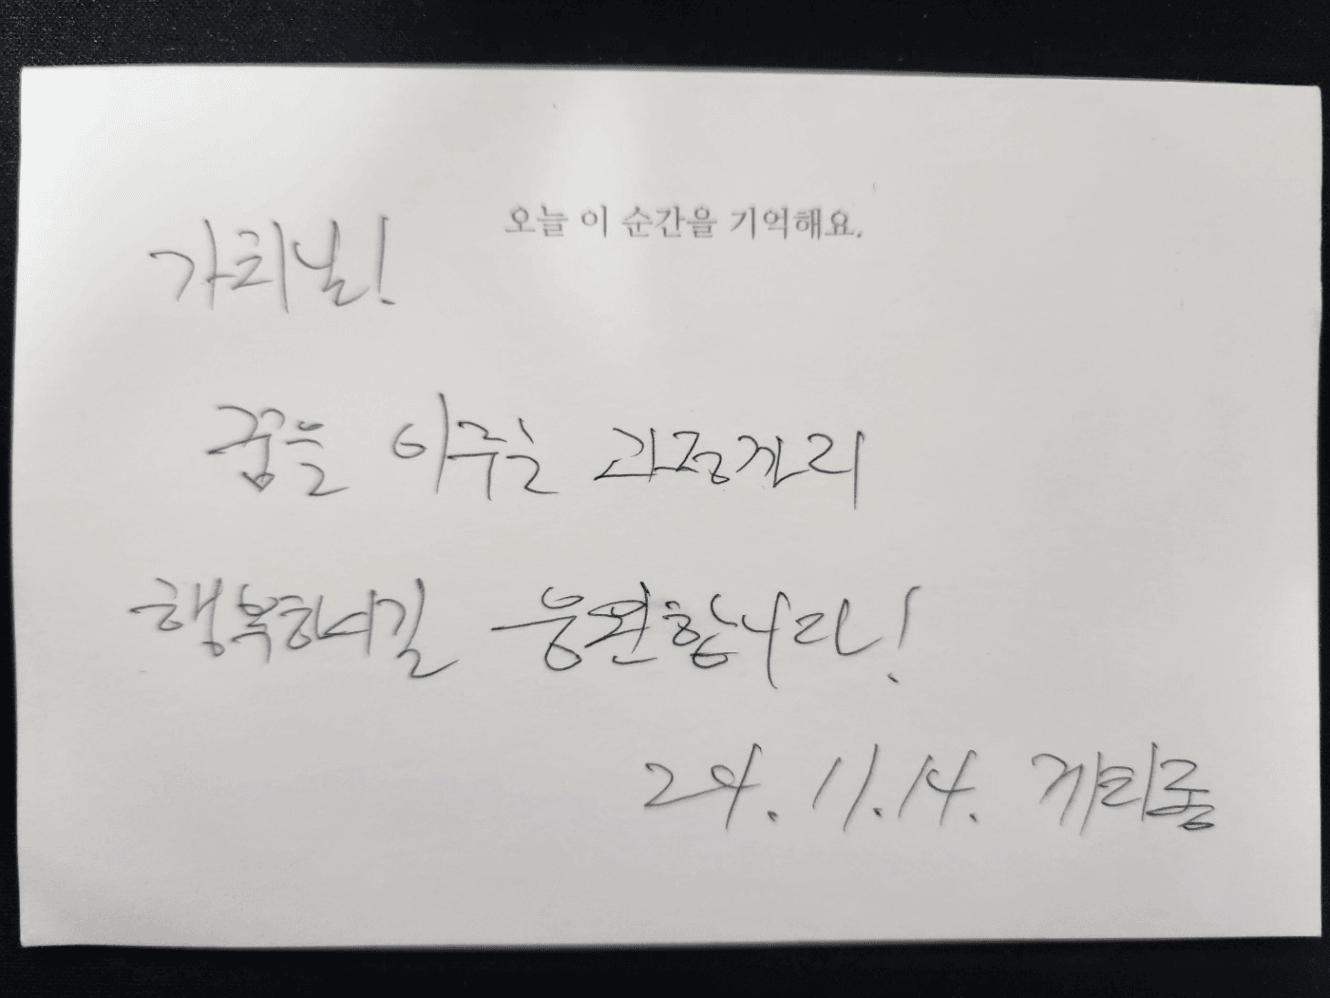 오늘 이 순간을 기억해요.
가치날!
꿈을 이루는 과정까지
행복하시길 응원합니다!
24. 11. 14.